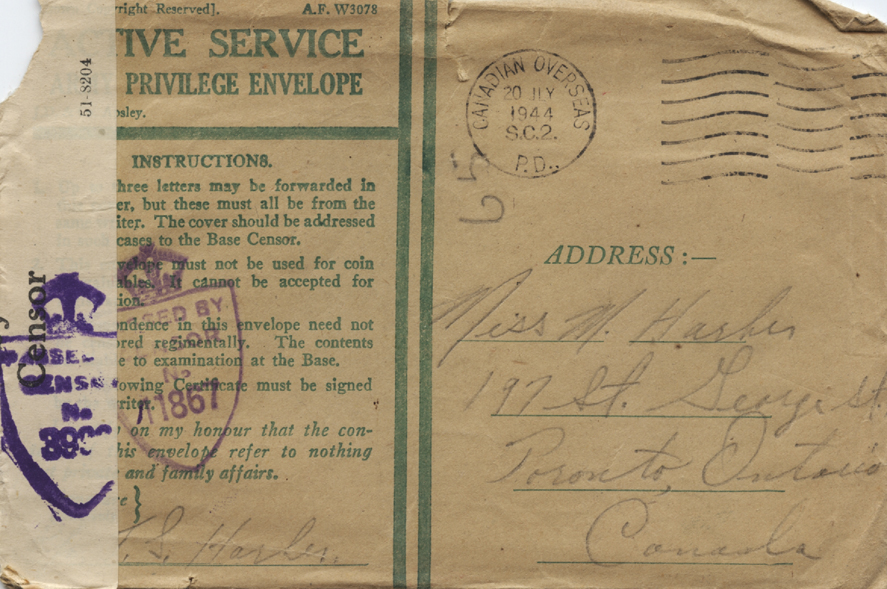 right Reserved]. A.F. W3078
TIVE SERVICE
PRIVILEGE ENVELOPE
51-8204
INSTRUCTIONS.
hree letters may be forwarded in
er, but these must all be from the
iter. The cover should be addressed
cases to the Base Censor.
velope must not be used for coin
ables. It cannot be accepted for
ion.
ndence in this envelope need not
ored regimentally. The contents
e to examination at the Base.
owing Certificate must be signed
riter.
on my honour that the con-
his envelope refer to nothing
and family affairs.
S. Harber
Censor
CENSOR
No
SED BY
No
11867
CANADIAN OVERSEAS
20 JLY
1944
S.C.2.
P.D.
65
ADDRESS :—
Miss M. Harber
197 St. George St
Toronto, Ontario
Canada